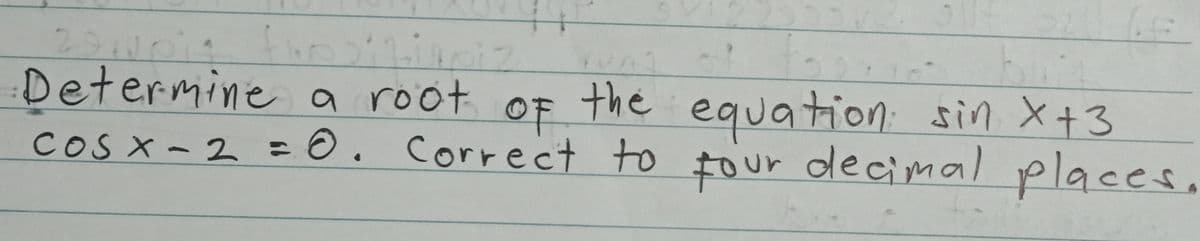 Determine a root of the equation sin x+3
cos x - 2 = 0. Correct to four decimal places.